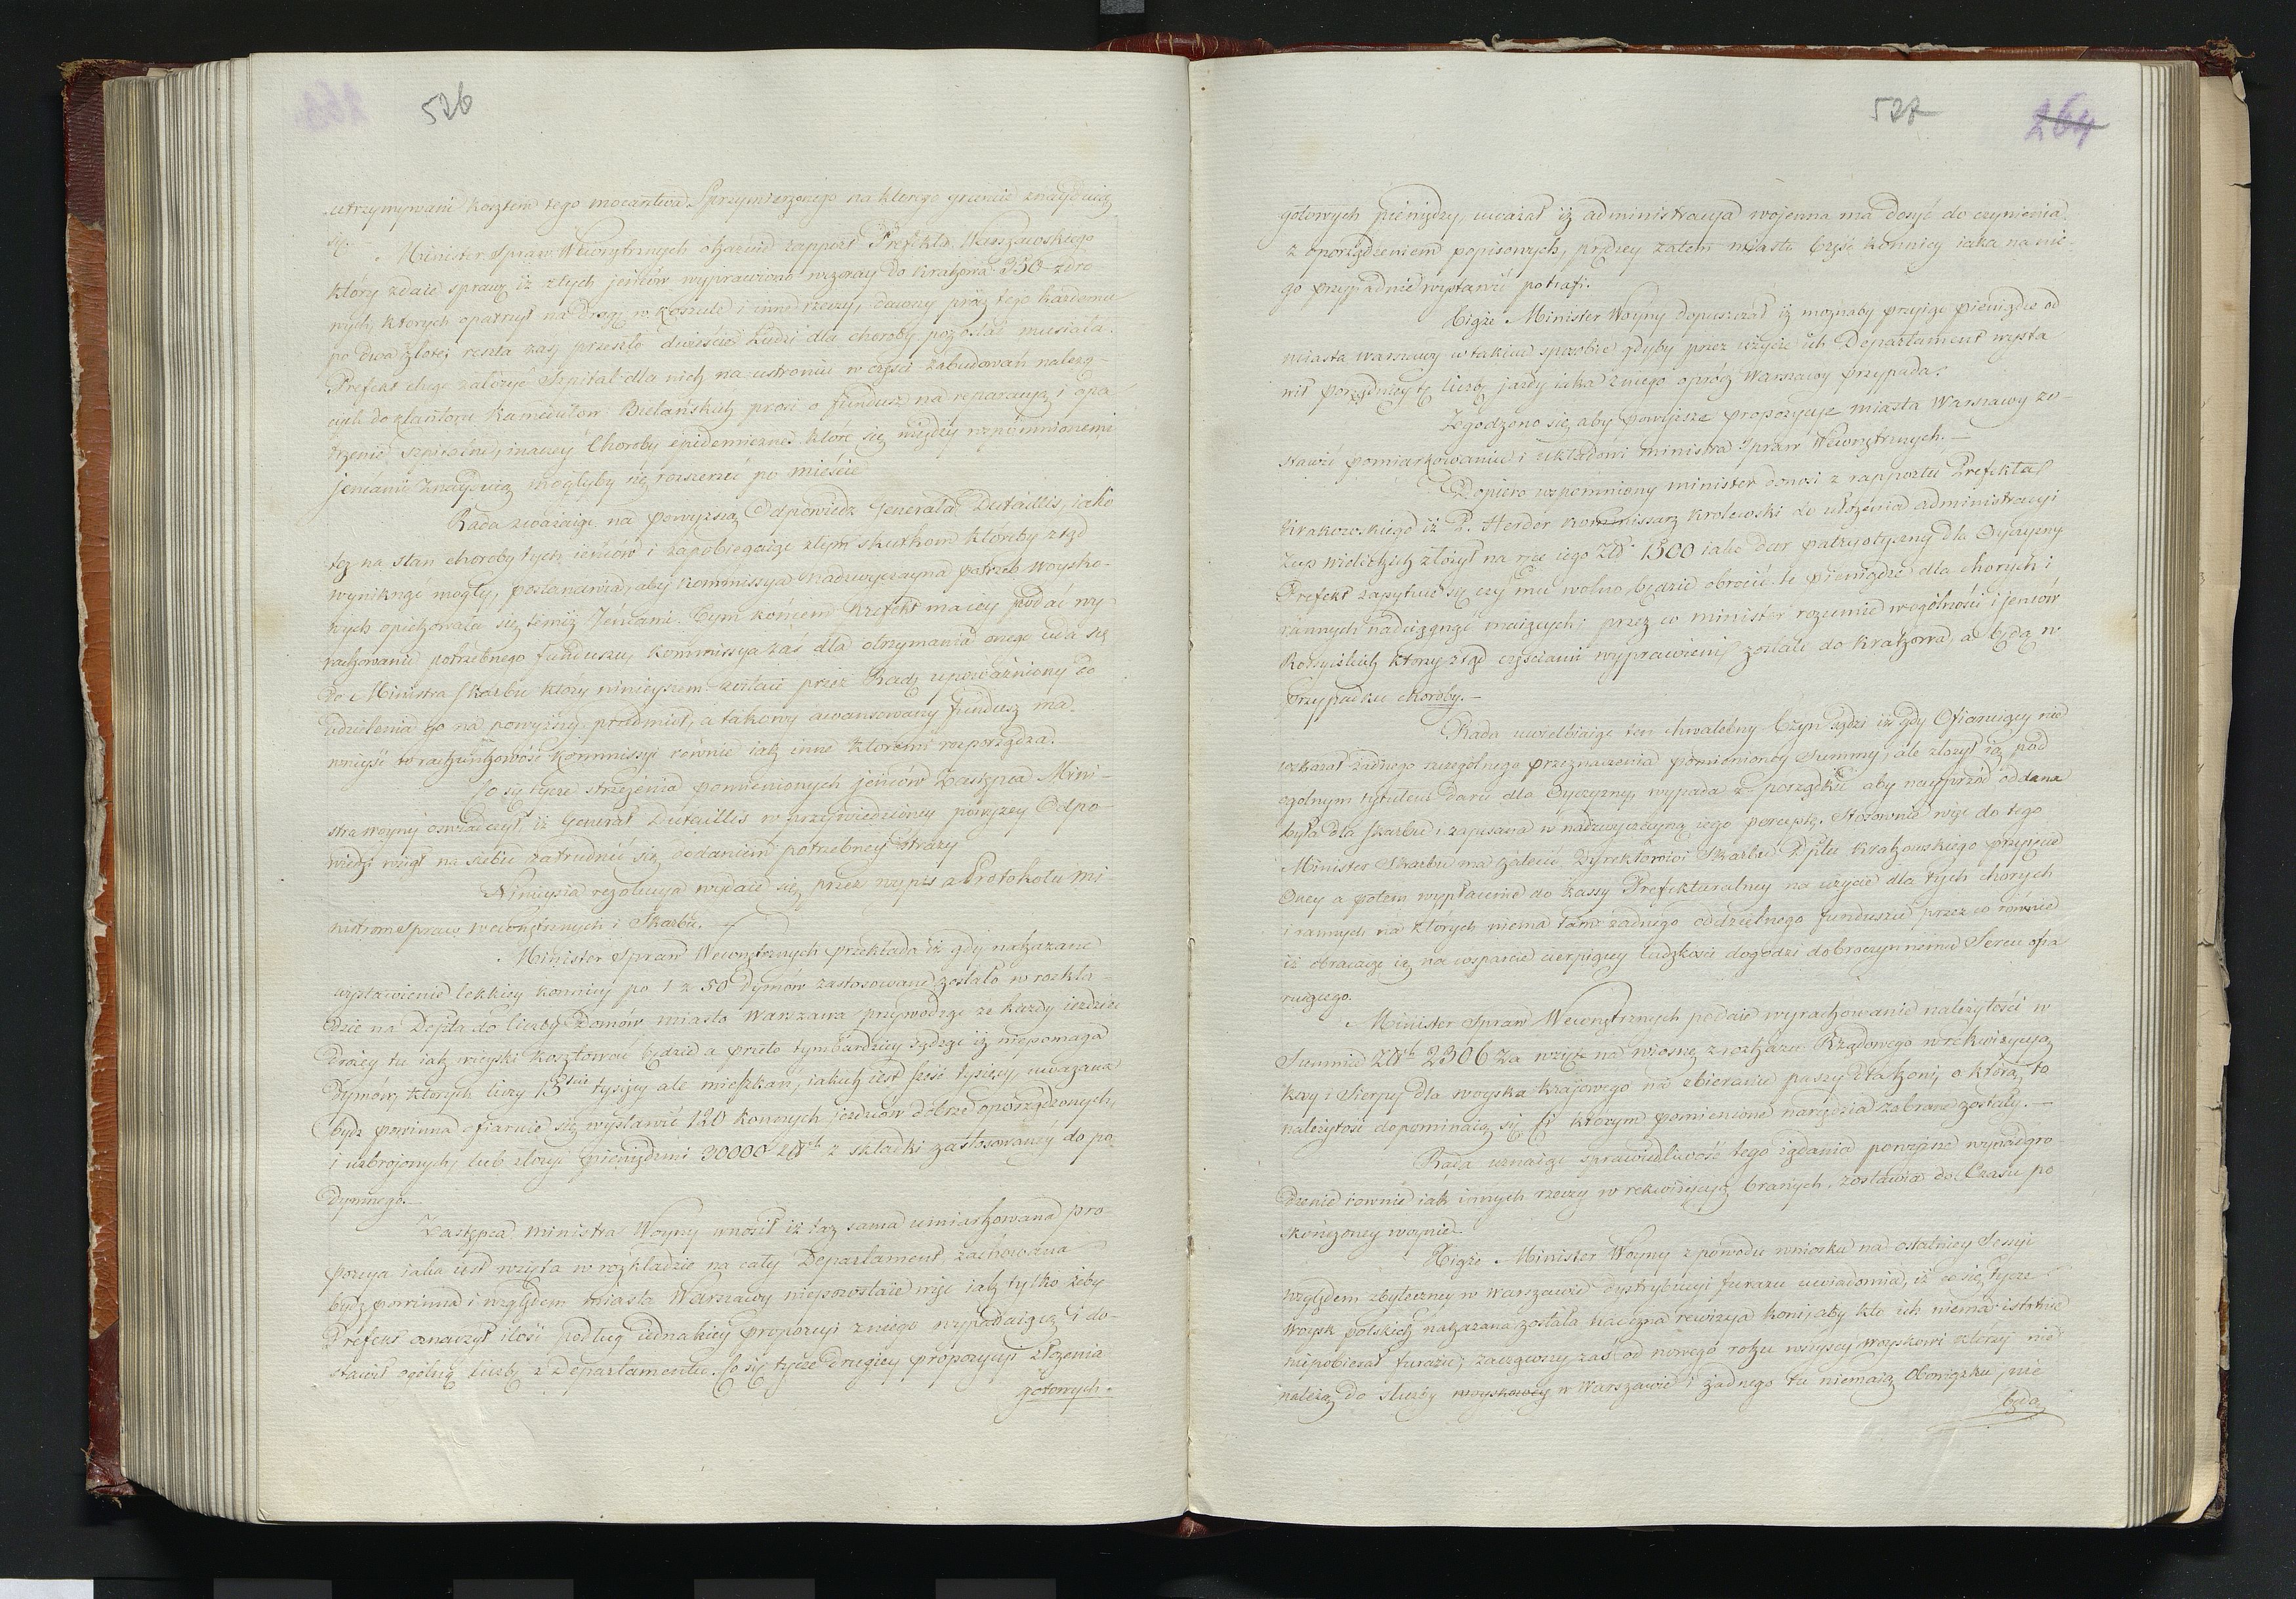 526
utrzymywani kosztem tego mocarstwa Sprzymierzonego na ktorego gruncie znayduią
się.
Minister Spraw Wewnętrznych okazuie rapport Prefekta Warszawskiego
który zdaie sprawę iż z tych jeńców wyprawiono wczoray do Krakowa 350 zdro-
wych, których opatrzył na drogę w koszule i inne rzeczy, dawszy prócz tego każdemu
po dwa złote; reszta zaś przeszło dwieście ludzi dla choroby pozostać musiała.
Prefekt chcąc założyć Szpital dla nich na ustroniu w części zabudowań należą-
cych do klasztoru Kamedułow Bielańskich prosi o fundusz na reparacyą i opa
trzenie szpitalne, inaczey choroby epidemiczne które się między wspomnionemi
jeńcami znayduią mogłyby się rozszerzyć po mieście
Rada zważaiąc na powyższą Odpowiedz Generała Dutaillis, iako
też na stan choroby tych ieńców i zapobiegaiąc złym skutkom któreby ztąd
wyniknąć mogły, postanawia, aby Kommissya Nadzwyczayna potrzeb woysko-
wych opiekowała się temiż Jeńcami. Tym końcem Prefekt ma iey podać wy
rachowanie potrzebnego funduszu, Kommissya zaś dla otrzymania onego uda się
do Ministra Skarbu który ninieyszem zostaie przez Radę upoważniony do
udzielenia go na powyższy przedmiot, a takowy awansowany fundusz ma
wniyść w rachunkowość Kommissyi równie iak inne ktoremi rozporządza.
Co się tycze strzeżenia pomienionych jeńców Zastępca Mini-
stra woyny oswiadczył, iż Generał Dutaillis w przywiedzioney powyżey Odpo-
wiedzi wziął na siebie zatrudnić się dodaniem potrzebney straży
Ninieysza rezolucya wydaie się przez wypis z Protokołu Mi
nistrom Spraw Wewnętrznych i Skarbu.
Minister Spraw Wewnętrznych przekłada iż gdy nakazane
wystawienie lekkiey konnicy po 1 z 50 dymów zastosowane zostało w rozkła-
dzie na Depta do liczby Domów, miasto Warszawa przywodząc że każdy ieździec
drożey tu iak wieyski kosztować będzie a przeto tymbardziey sądząc iż niepomaga
Dymów, ktorych liczy 13ście tysięcy ale mieszkań, iakich iest sześć tysięcy, uważana
bydź powinna ofiaruie się wystawić 120 konnych jezdców dobrze oporządzonych,
i uzbrojonych, lub złożyć pieniędzmi 30000 złch z składki zastosowaney do po
dymnego.
Zastępca Ministra Woyny wnosił iż taż sama umiarkowana pro
porcya iaka iest wzięta w rozkładzie na cały Departament zachowana
bydź powinna i względem miasta Warszawy niepozostaie więc iak tylko żeby
Prefekt oznaczył ilość podług iednakiey proporcyi z niego wypadaiącą i do-
stawił ogólną liczbę z Departamentu. Co się tycze drugiey propozycyi złożenia
gotowych.
527
264
gotowych pieniędzy, uważał iż administracya wojenna ma dosyć do czynienia
z oporządzeniem popisowych, prędzey zatem miasto część konnicy iaka na nie-
go przypadnie wystawić potrafi.
Tegże Minister Woyny dopuszczał iż możnaby przyiąć pieniądze od
miasta Warszawy w takim sposobie gdyby przez użycie ich Departament wysta
wił porządniey tę liczbę jazdy iaka z niego oprócz Warszawy przypada.
Zgodzono się, aby powyższe propozycye miasta Warszawy zo-
stawić pomiarkowaniu i układowi Ministra Spraw Wewnętrznych.—
Dopiero wspomniony minister donosi z rapportu Prefekta
Krakowskiego iż P. Herdor Kommissarz Krolewski do ułożenia administracyi
Żup Wielickich złożył na ręce iego Złł 1500 iako dar patryotyczny dla Oyczyzny
Prefekt zapytuie się czy mu wolno będzie obrocić te pieniądze dla chorych i
rannych nadciągnąć maiących; przez co minister rozumie w ogólności i jeńców
Rossyiskich którzy ztąd częściami wyprawieni zostali do Krakowa a będą w
przypadku choroby.—
Rada uwielbiaiąc ten chwalebny Czyn sądzi iż gdy Ofiaruiący nie
wskazał żadnego szczególnego przeznaczenia pomienioney Summy, ale złożył ią pod
ogólnym tytułem daru dla Oyczyzny, wypada z porządku aby nayprzód oddana
była dla Skarbu i zapisana w nadzwyczayną iego perceptę. Stosownie więc do tego
Minister Skarbu ma zalecić Dyrektorowi Skarbu Dptu Krakowskiego przyięcie
Oney a potem wypłacenie do kassy Prefekturalney na użycie dla tych chorych
i rannych na których niema tam żadnego oddzielnego funduszu przez co równie
iż obracaiąc ią na wsparcie cierpiącey ludzkości dogodzi dobroczynnemu Sercu ofia
ruiącego.
Minister Spraw Wewnętrznych podaie wyrachowanie należytości w
Summie Złch 2306 za wzięte na wiosnę z rozkazu Rządowego w rekwizycyą
kosy i Sierpy dla woyska kraiowego na zbieranie paszy dla koni, o którą to
należytość dopominaią się ci którym pomienione narzędzia zabrane zostały.—
Rada uznaiąc sprawiedliwość tego żądania powzięcie wynadgro-
dzenie równie iak innych rzeczy w rekwizycyą branych, zostawia do Czasu po
skończoney woynie.
Tegże Minister Woyny z powodu wniosku na ostatniey Sessyi
względem zbyteczney w Warszawie dystrybucyi furażu uwiadomia, iż co się tycze
Woysk polskich nakazana została baczna rewizya koni, aby kto ich niema istotnie
niepobierał furażu; zacząwszy zaś od nowego roku wszyscy woyskowi ktorzy nie
należą do służby woyskowey w Warszawie i żadnego tu niemaią Obowiązku, nie
będą